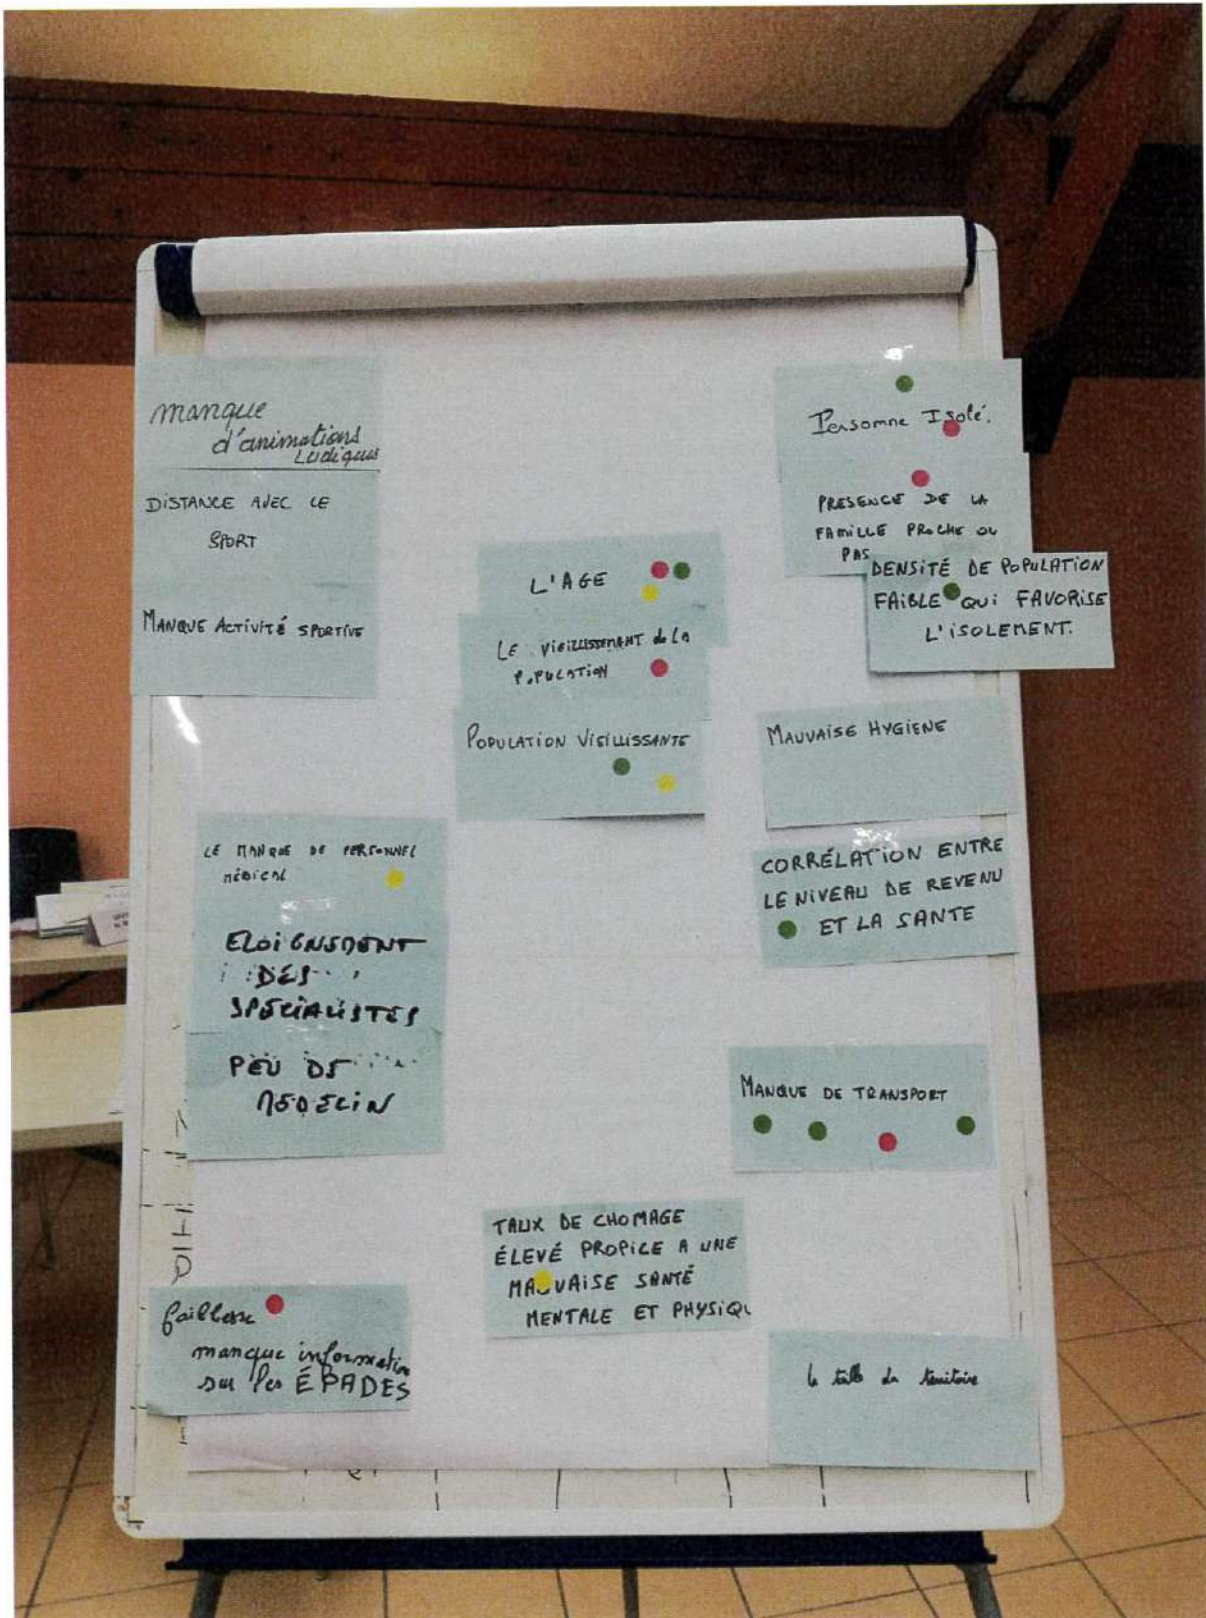 manque
d'animations
Ludiques
DISTANCE AVEC LE
SPORT
MANQUE ACTIVITÉ SPORTIVE
LE MANQUE DE PERSONNEL
MÉDICAL
ELOIGNEMENT
DES
SPECIALISTES
PEU DE
MEDECIN
faiblesse
manque information
sur les ÉPADES
L'AGE
LE VIEILLISSEMENT de LA
POPULATION
POPULATION VIEILLISSANTE
TAUX DE CHOMAGE
ÉLEVÉ PROPICE A UNE
MAUVAISE SANTÉ
MENTALE ET PHYSIQU
Personne Isolé.
PRESENCE DE LA
FAMILLE PROCHE OU
PAS
DENSITÉ DE POPULATION
FAIBLE QUI FAVORISE
L'ISOLEMENT.
MAUVAISE HYGIENE
CORRÉLATION ENTRE
LE NIVEAU DE REVENU
ET LA SANTE
MANQUE DE TRANSPORT
la taille du territoire